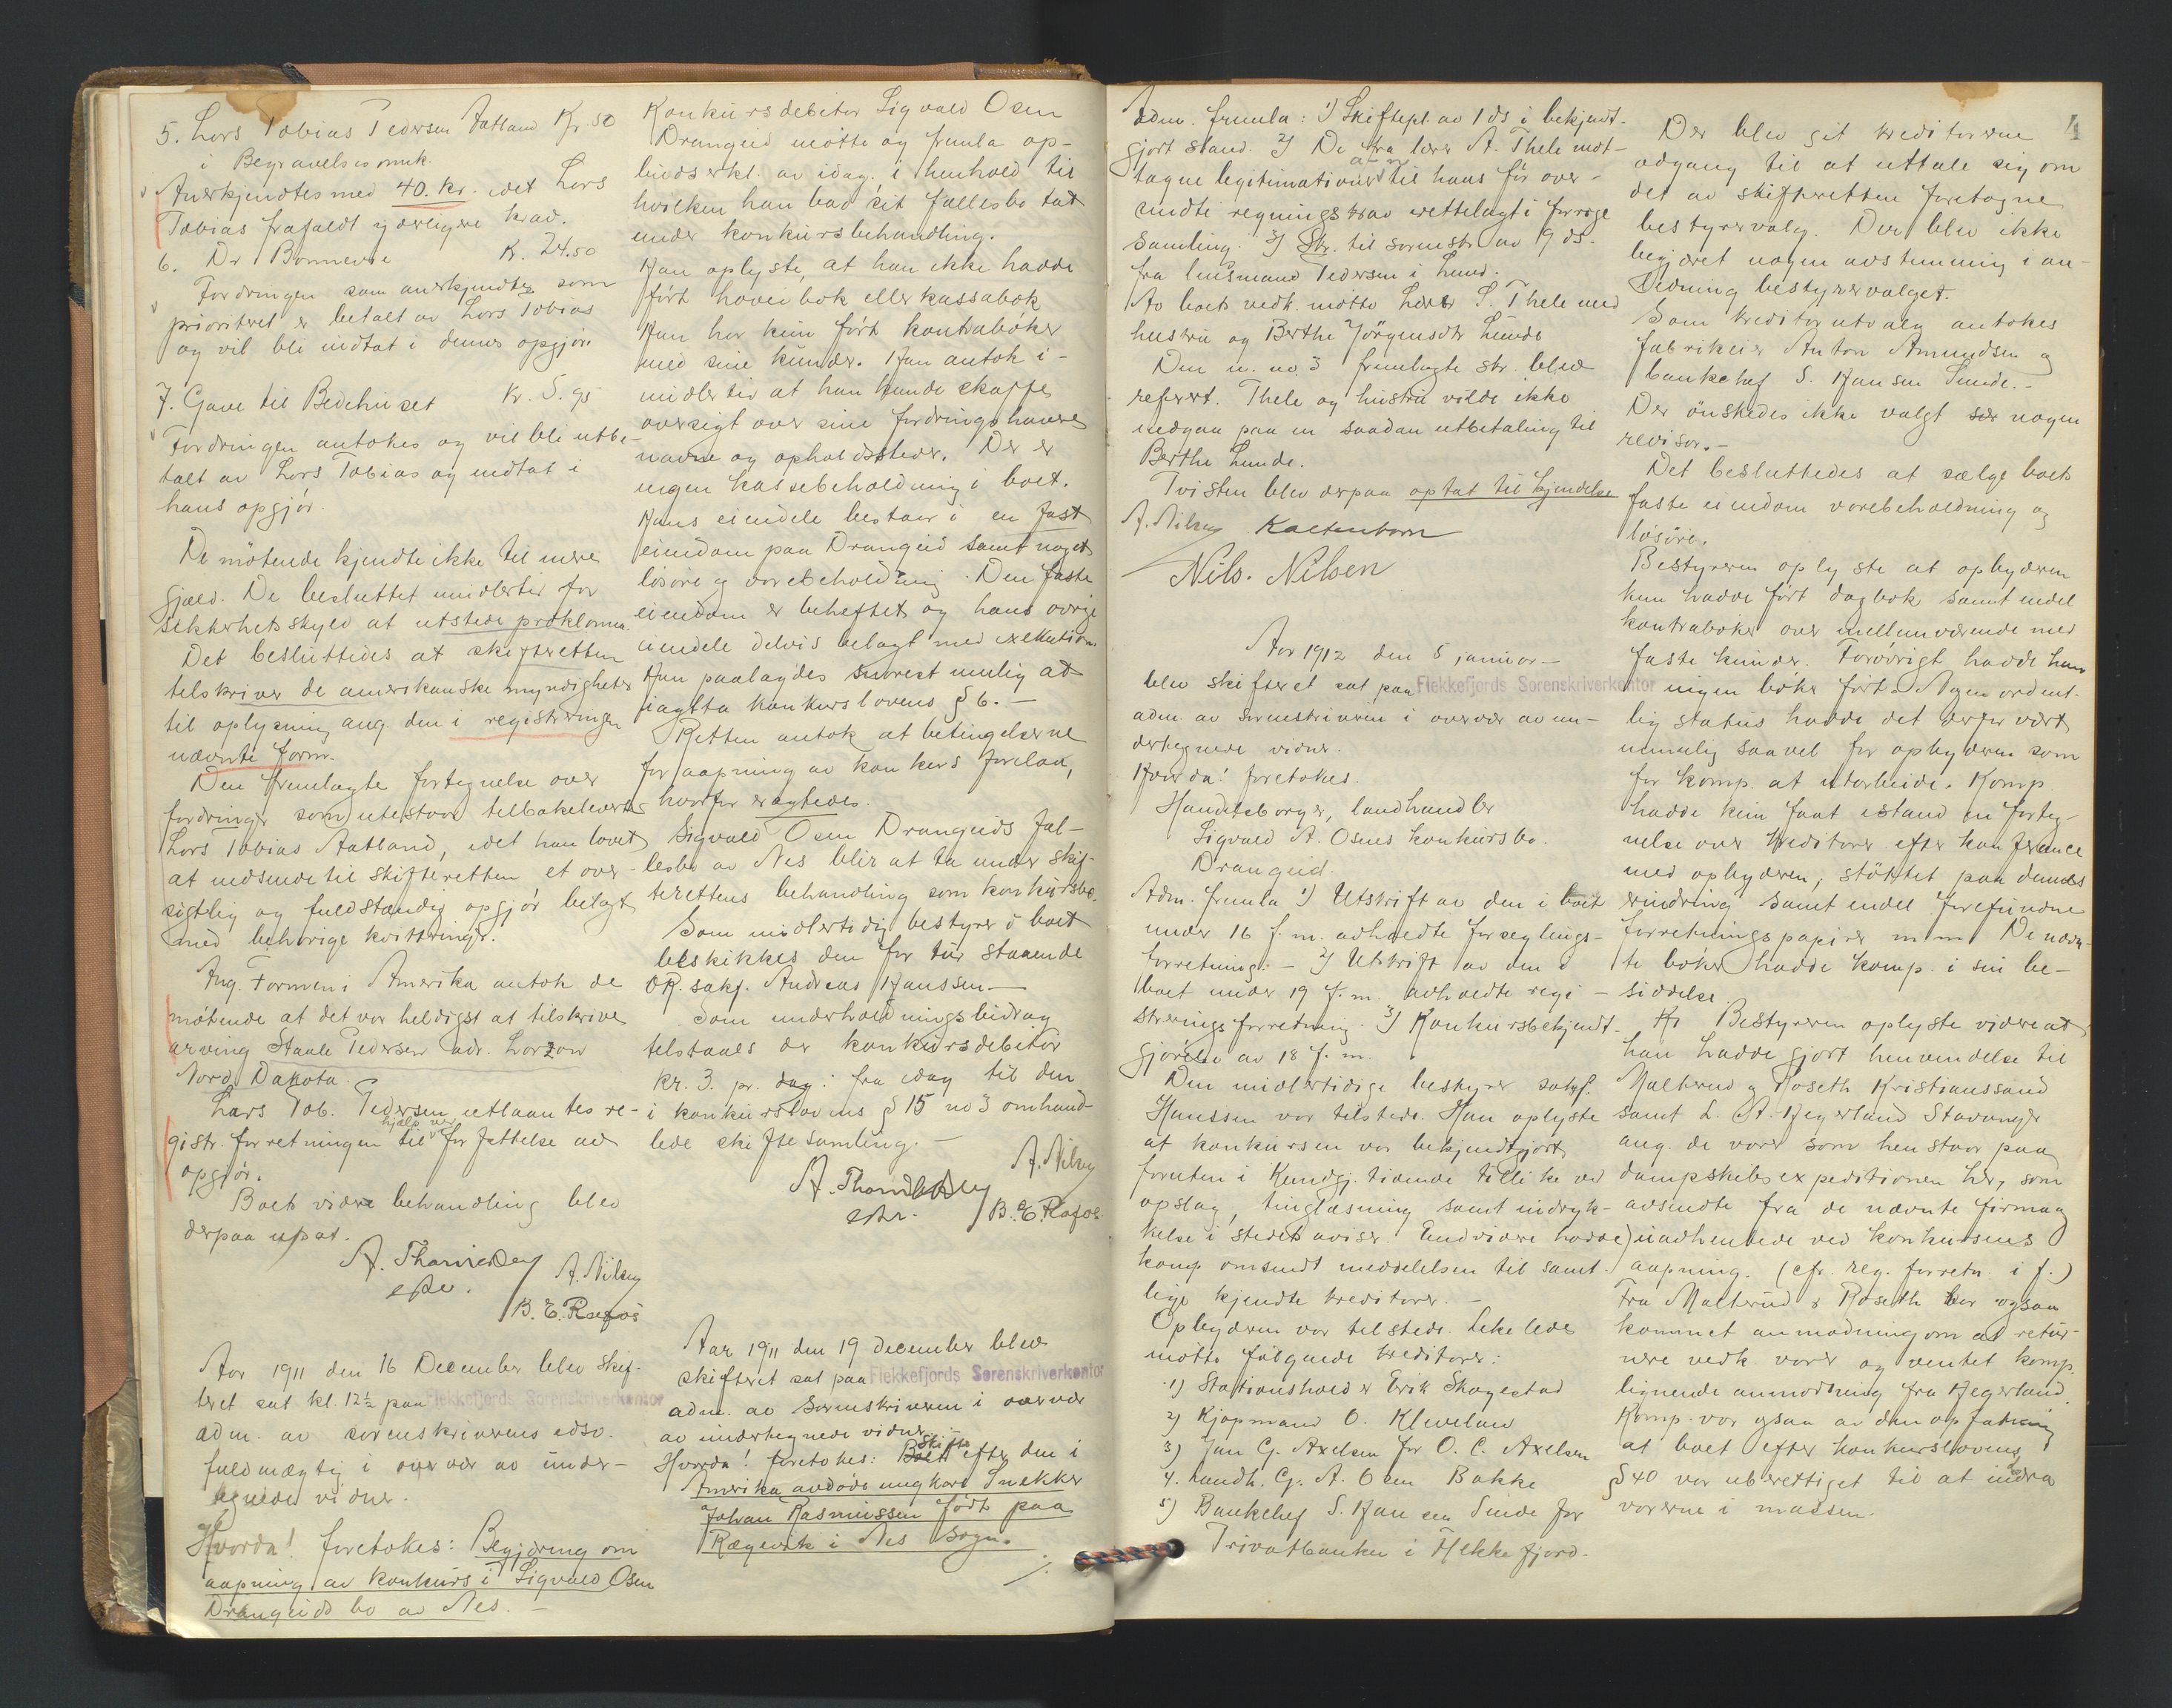 5. Lars Tobias Pedersen Aatland Kr. 50
i Begravelsesomk.
Anerkjendtes med 40. kr. idet Lars
Tobias frafaldt yderligere krav.
6. Dr Bonnevie Kr. 24.50
Fordringen som anerkjendtes som
prioritert er betalt av Lars Tobias
og vil bli indtat i dennes opgjör.
7. Gave til Bedehuset Kr. 5.95
Fordringen antokes og vil bli utbe-
talt av Lars Tobias og indtat i
hans opgjör.
De mötende kjendte ikke til mere
gjæld. De besluttet imidlertid for
sikkerhets skyld at utstede proklama.
Det besluttedes at skifteretten
tilskriver de amerikanske myndigheter
til oplysning ang. den i registreringen
nævnte farm.
Den fremlagte fortegnelse over
fordringer som utestaar tilbakeleverts
Lars Tobias Aatland, idet han lovet
at indsende til skifteretten et over-
sigtlig og fuldstændig opgjör belagt
med behörige kvitteringer.
Ang. Farmen i Amerika antok de
mötende at det var heldigst at tilskrive
arving Staale Pedersen adr. Larzon
Nord Dakota.
Lars Tob. Pedersen utlaantes re-
gistr. forretningen til hjælp ved forfattelse av
opgjör.
Boets videre behandling blev
derpaa upsat.
A. Thorvildsen
edsv. A. Nilsen
B. E. Rafos
Aar 1911 den 16 December blev skif-
teret sat kl. 12½ paa Flekkefjords Sorenskriverkontor
adm. av sorenskriverens edsv.
fuldmægtig i overvær av under-
tegnede vidner.
Hvorda! foretokes: Begjæring om
aapning av konkurs i Sigvald Osen
Drangeids bo av Nes. -
Konkursdebitor Sigvald Osen
Drangeid mötte og fremla op-
budserkl. av idag. i henhold til
hvilken han bad sit fællesbo tat
under konkursbehandling.
Han oplyste at han ikke hadde
fört hovedbok eller kassabok
Han har kun fört kontraböker
med sine kunder. Han antok i-
midlertid at han kunde skaffe
oversigt over sine fordringshaveres
navne og opholdssteder. Der er
ingen kassebeholdning i boet.
Hans eiendele bestaar i en fast
eiendom paa Drangeid samt noget
lösöre og varebeholdning. Den faste
eiendom er beheftet og hans övrige
eiendele delvis belagt med exekution
Han paalagdes snarest mulig at
iagtta konkurslovens § 6. -
Retten antok at betingelserne
for aapning av konkurs forelaa,
hvorfor eragtedes.
Sigvald Osen Drangeids fæl-
lesbo av Nes blir at ta under skif-
terettens behandling som konkursbo.
Som midlertidig bestyrer i boet
beskikkes den for tur staaende
OR. sakf. Andreas Hanssen. -
Som underholdningsbidrag
tilstaaes der konkursdebitor
kr. 3. pr. dag: fra idag til den
i konkurslovens § 15 no 3 omhand-
lede skiftesamling. -
A. Thorvildsen A. Nilsen
edsv. B. E. Rafos.
Aar 1911 den 19 December blev
skifteret sat paa Flekkefjords Sorenskriverkontor
adm. av Sorenskriveren i overvær
av undertegnede vidner
Hvorda! foretokes: Skifte efter den i
Amerika avdöde ungkarl Snekker
Johan Rasmussen födt paa
Rægevik i Nes Sogn.
./.
4
Adm. fremla: 1) Skiftepl. av 1 ds i bekjendt-
gjort stand. 2) De fra lærer A. Thele mot-
tagne legitimationer til hans för over-
sendte regningskrav rettelagt i forrige
samling. 3) Skr. til sorenskr av 9 ds.
fra lensmand Pedersen i Lund.
Av boets vedk. mötte Lærer S. Thele med
hustru og Berthe Jörgensdtr Lunde
Den u. no. 3 fremlagte skr. blev
referert. Thele og hustru vilde ikke
indgaa paa en saadan utbetaling til
Berthe Lunde.
Tvisten blev derpaa optat til kjendelse
A. Nilsen Kaltenborn
Nils. Nilsen
Aar 1912 den 5 januar -
blev skifteret sat paa Flekkefjords Sorenskriverkontor
adm av sorenskriveren i overvær av un-
dertegnede vidner.
Hvorda! foretokes.
Handelsborger, landhandler
Sigvald A. Osens konkursbo.
Drangeid.
Adm. fremla 1) Utskrift av den i boet
under 16 f. m. avholdte forseglings-
forretning. - 2) Utskrift av den i
boet under 19 f. m. avholdte regi-
streringsforretning. 3) Konkursbekjendt-
gjörelse av 18 f. m.
Den midlertidige bestyrer sakf.
Hanssen var tilstede. Han oplyste
at konkursen var bekjendtgjort
foruten i Kundgj. tidende tillike ved
opslag, tinglæsning samt indryk-
kelse i stedets aviser. Endvidere hadde
komp. omsendt meddelelsen til samt-
lige kjendte kreditorer. -
Opbyderen var tilstede. Likeledes
mötte fölgende kreditorer:
1) Stationsholder Erik Skogestad
2) Kjöpmand O. Kleveland
3) Jan G. Axelsen for O. C. Axelsen
4. Landh. G. A. Osen Bakke
5) Bankchef S. Hansen Sunde for
Privatbanken i Flekkefjord.
Der blev git kreditorerne
adgang til at uttale sig om
det av skifteretten foretagne
bestyrervalg. Der blev ikke
begjæret nogen avstemning i an-
ledning bestyrervalget.
Som kreditorutvalg antokes
fabrikeier Anton Amundsen og
bankchef S. Hansen Sunde. -
Der önskedes ikke valgt nogen
revisor. -
Det besluttedes at sælge boets
faste eiendom varebeholdning og
lösöre.
Bestyreren oplyste at opbyderen
kun hadde fört dagbok samt endel
kontraböker over mellemværende med
faste kunder. Forövrigt hadde han
ingen böker fört. Nogen ordent-
lig status hadde det derfor vært
umulig saavel for opbyderen som
for komp. at utarbeide. Komp.
hadde kun faat istand en forteg-
nelse over kreditorer efter konferance
med opbyderen, stöttet paa dennes
erindring samt endel forefundne
forretningspapirer m m. De nævn-
te böker hadde komp. i sin be-
siddelse.
Bestyreren oplyste videre at
han hadde gjort henvendelse til
Malterud & Roseth Kristianssand
samt L. A. Hegerland Stavanger
ang. de varer som henstaar paa
dampskibsexpeditionen her, som
avsendte fra de nævnte firmaer
uavhentede ved konkursens
aapning. (cfr. reg. forretn. i f.)
Fra Malterud & Roseth var ogsaa
kommet anmodning om at retur-
nere vedk varer og ventet komp.
lignende anmodning fra Hegerland
Komp. var ogsaa av den opfatning
at boet efter konkurslovens
§ 40 var uberettiget til at inddra
varerne i massen.